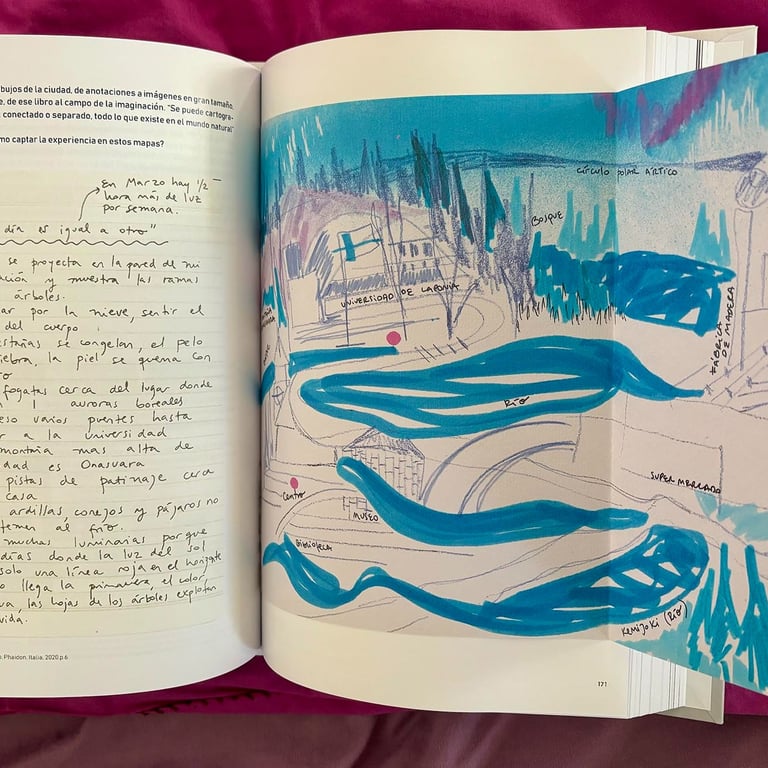 bujos de la ciudad, de anotaciones a imágenes en gran tamaño,
e, de ese libro al campo de la imaginación. "Se puede cartogra-
conectado o separado, todo lo que existe en el mundo natural"
mo captar la experiencia en estos mapas?
En Marzo hay 1/2
hora más de luz
por semana.
día es igual a otro"
se proyecta en la pared de mi
ción y muestra las ramas
árboles.
ar por la nieve, sentir el
del cuerpo
estañas se congelan, el pelo
iebra, la piel se quema con
ro
fogatas cerca del lugar donde
auroras boreales
eso varios puentes hasta
r a la Universidad
montaña mas alta de
dad es Ounasvara
pistas de patinaje cerca
casa
ardillas, conejos y pájaros no
temen al frío.
muchas luminarias porque
días donde la luz del sol
solo una línea roja en el horizonte
o llega la primavera el color,
va, las hojas de los árboles explotan
vida.
o. Phaidon, Italia, 2020 p.6
CÍRCULO POLAR ÁRTICO
BOSQUE
UNIVERSIDAD DE LAPONIA
FÁBRICA
DE MADERA
RÍO
SUPER MERCADO
Centro
MUSEO
Biblioteca
KEMIJOKI (RÍO)
171